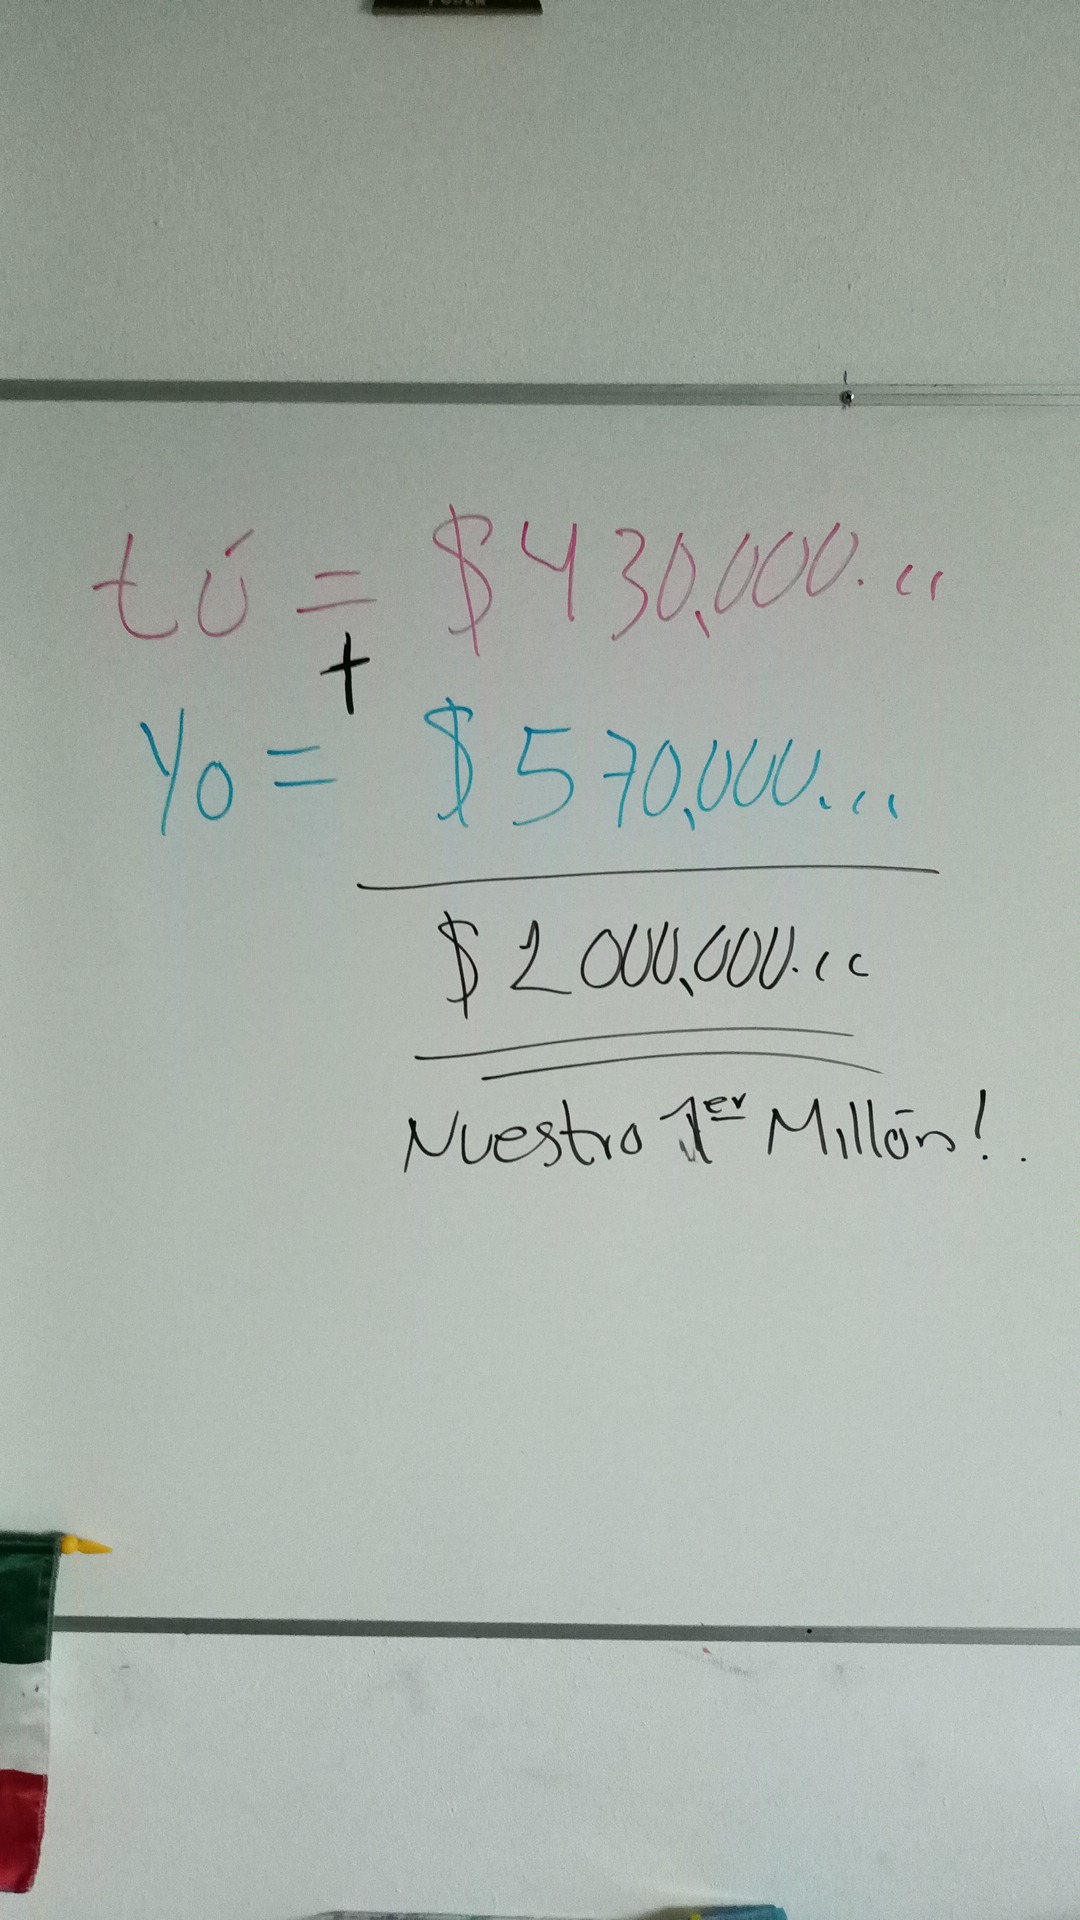 tú = $430,000.00
+
Yo = $570,000.00
$1 000,000.00
Nuestro 1er Millón!.